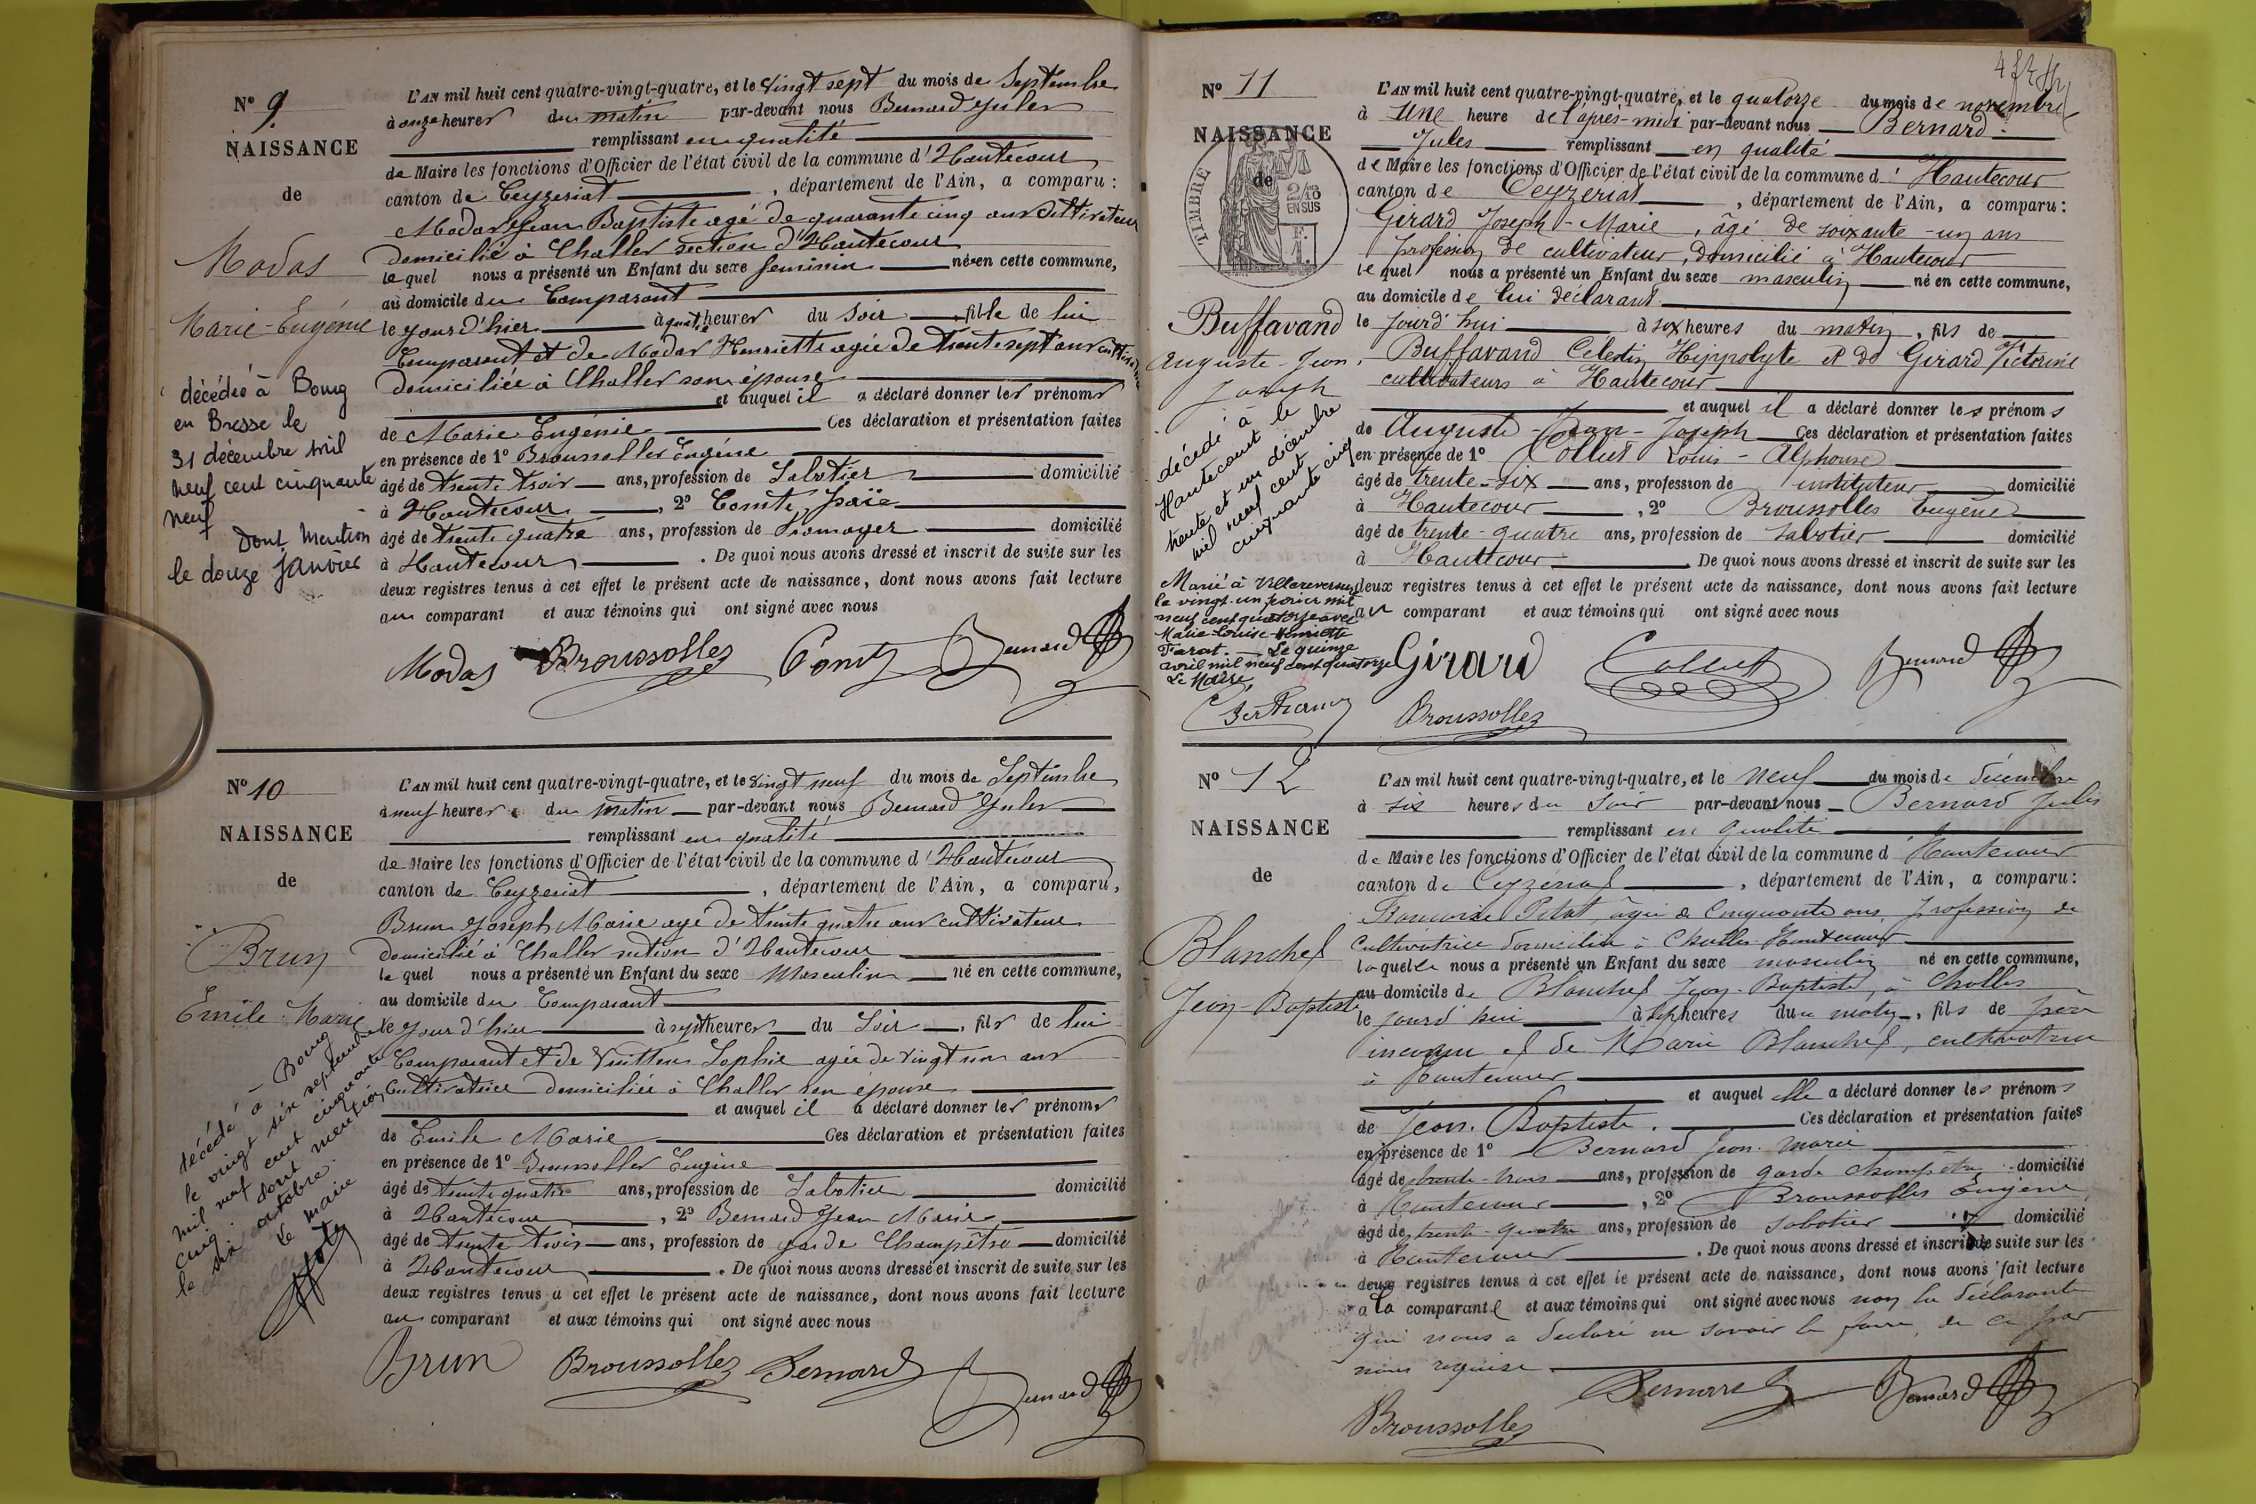 N° 9.
NAISSANCE
de
Modas
Marie-Eugénie
décédée à Bourg
en Bresse le
31 décembre mil
neuf cent cinquante
neuf
Dont mention
le douze janvier
L'AN mil huit cent quatre-vingt-quatre, et le vingt sept du mois de Septembre
à onze heures du matin par-devant nous Bernard Jules
remplissant en qualité
de Maire les fonctions d'Officier de l'état civil de la commune d'Hautecour
canton de Ceyzeriat, département de l'Ain, a comparu :
Modas Jean Baptiste agé de quarante cinq ans Cultivateur
domicilié à Challes section d'Hautecour
lequel nous a présenté un Enfant du sexe feminin né en cette commune,
au domicile du Comparant
le jour d'hier à quatre heures du soir, fille de lui
Comparant et de Modas Henriette agée de trente sept ans cultivatrice
domiciliée à Challes son épouse
et auquel il a déclaré donner les prénoms
de Marie Eugénie Ces déclaration et présentation faites
en présence de 1° Broussolles Eugéne
âgé de trente trois ans, profession de Sabotier domicilié
à Hautecour, 2° Comte
âgé de trente quatre ans, profession de Fromager domicilié
à Hautecour. De quoi nous avons dressé et inscrit de suite sur les
deux registres tenus à cet effet le présent acte de naissance, dont nous avons fait lecture
au comparant et aux témoins qui ont signé avec nous
Modas Broussolles Comte Bernard
N° 10
NAISSANCE
de
Brun
Emile-Marie
décédé à Bourg
le vingt six septembre
mil neuf cent cinquante
cinq. dont mention
le six octobre.
Le maire
L'AN mil huit cent quatre-vingt-quatre, et le vingt neuf du mois de Septembre
à neuf heures du matin par-devant nous Bernard Jules
remplissant en qualité
de Maire les fonctions d'Officier de l'état civil de la commune d'Hautecour
canton de Ceyzeriat, département de l'Ain, a comparu,
Brun Joseph Marie agé de trente quatre ans cultivateur
domicilié à Challes section d'Hautecour
lequel nous a présenté un Enfant du sexe Masculin né en cette commune,
au domicile du Comparant
le jour d'hier à sept heures du Soir, fils de lui
Comparant et de Sophie agée de vingt ans
Cultivatrice domiciliée à Challes son épouse
et auquel il a déclaré donner les prénoms
de Emile Marie Ces déclaration et présentation faites
en présence de 1° Broussolles Eugéne
âgé de trente quatre ans, profession de Sabotier domicilié
à Hautecour, 2° Bernard Jean Marie
âgé de trente trois ans, profession de garde Champêtre domicilié
à Hautecour. De quoi nous avons dressé et inscrit de suite sur les
deux registres tenus à cet effet le présent acte de naissance, dont nous avons fait lecture
au comparant et aux témoins qui ont signé avec nous
Brun Broussolles Bernard Bernard
N° 11
NAISSANCE
de
TIMBRE
2/10 EN SUS
Buffavand
Auguste-Jean-
Joseph
décédé à
Hautecourt le
trente et un décembre
mil neuf cent
cinquante cinq
Marié à Villereversure
le vingt-un février mil
neuf cent quatorze avec
Marie-Louise-Henriette
Farat. Le quinze
avril mil neuf cent quatorze
Le Maire,
L'AN mil huit cent quatre-vingt-quatre, et le quatorze du mois de novembre
à une heure de l'après-midi par-devant nous Bernard
Jules remplissant en qualité
de Maire les fonctions d'Officier de l'état civil de la commune d'Hautecour
canton de Ceyzeriat, département de l'Ain, a comparu :
Girard Joseph-Marie, âgé de soixante-un ans
profession de cultivateur, domicilié à Hautecour
lequel nous a présenté un Enfant du sexe masculin né en cette commune,
au domicile de lui déclarant
le jourd'hui à six heures du matin, fils de
Buffavand Celestin Hippolyte et de Girard Victorine
cultivateurs à Hautecour
et auquel il a déclaré donner les prénoms
de Auguste-Jean-Joseph Ces déclaration et présentation faites
en présence de 1° Collet Louis-Alphonse
âgé de trente-six ans, profession de instituteur domicilié
à Hautecour, 2° Broussolles Eugène
âgé de trente-quatre ans, profession de sabotier domicilié
à Hautecour. De quoi nous avons dressé et inscrit de suite sur les
deux registres tenus à cet effet le présent acte de naissance, dont nous avons fait lecture
au comparant et aux témoins qui ont signé avec nous
Girard Collet Bernard
Broussolles
N° 12
NAISSANCE
de
Blanchet
Jean-Baptiste
L'AN mil huit cent quatre-vingt-quatre, et le neuf du mois de décembre
à six heures du soir par-devant nous Bernard Jules
remplissant en qualité
de Maire les fonctions d'Officier de l'état civil de la commune d'Hautecour
canton de Ceyzériat, département de l'Ain, a comparu :
Françoise Pitat, âgée de cinquante ans, profession de
cultivatrice domiciliée à Challes Hautecour
laquelle nous a présenté un Enfant du sexe masculin né en cette commune,
au domicile de Blanchet Jean-Baptiste, à Challes
le jourd'hui à sept heures du matin, fils de père
inconnu et de Marie Blanchet, cultivatrice
à Hautecour
et auquel elle a déclaré donner les prénoms
de Jean-Baptiste. Ces déclaration et présentation faites
en présence de 1° Bernard Jean-Marie
âgé de trente-trois ans, profession de garde champêtre domicilié
à Hautecour, 2° Broussolles Eugène
âgé de trente-quatre ans, profession de sabotier domicilié
à Hautecour. De quoi nous avons dressé et inscrit de suite sur les
deux registres tenus à cet effet le présent acte de naissance, dont nous avons fait lecture
a la comparante et aux témoins qui ont signé avec nous non la déclarante
qui nous a déclaré ne savoir le faire, de ce par
nous requise
Bernard Bernard
Broussolles